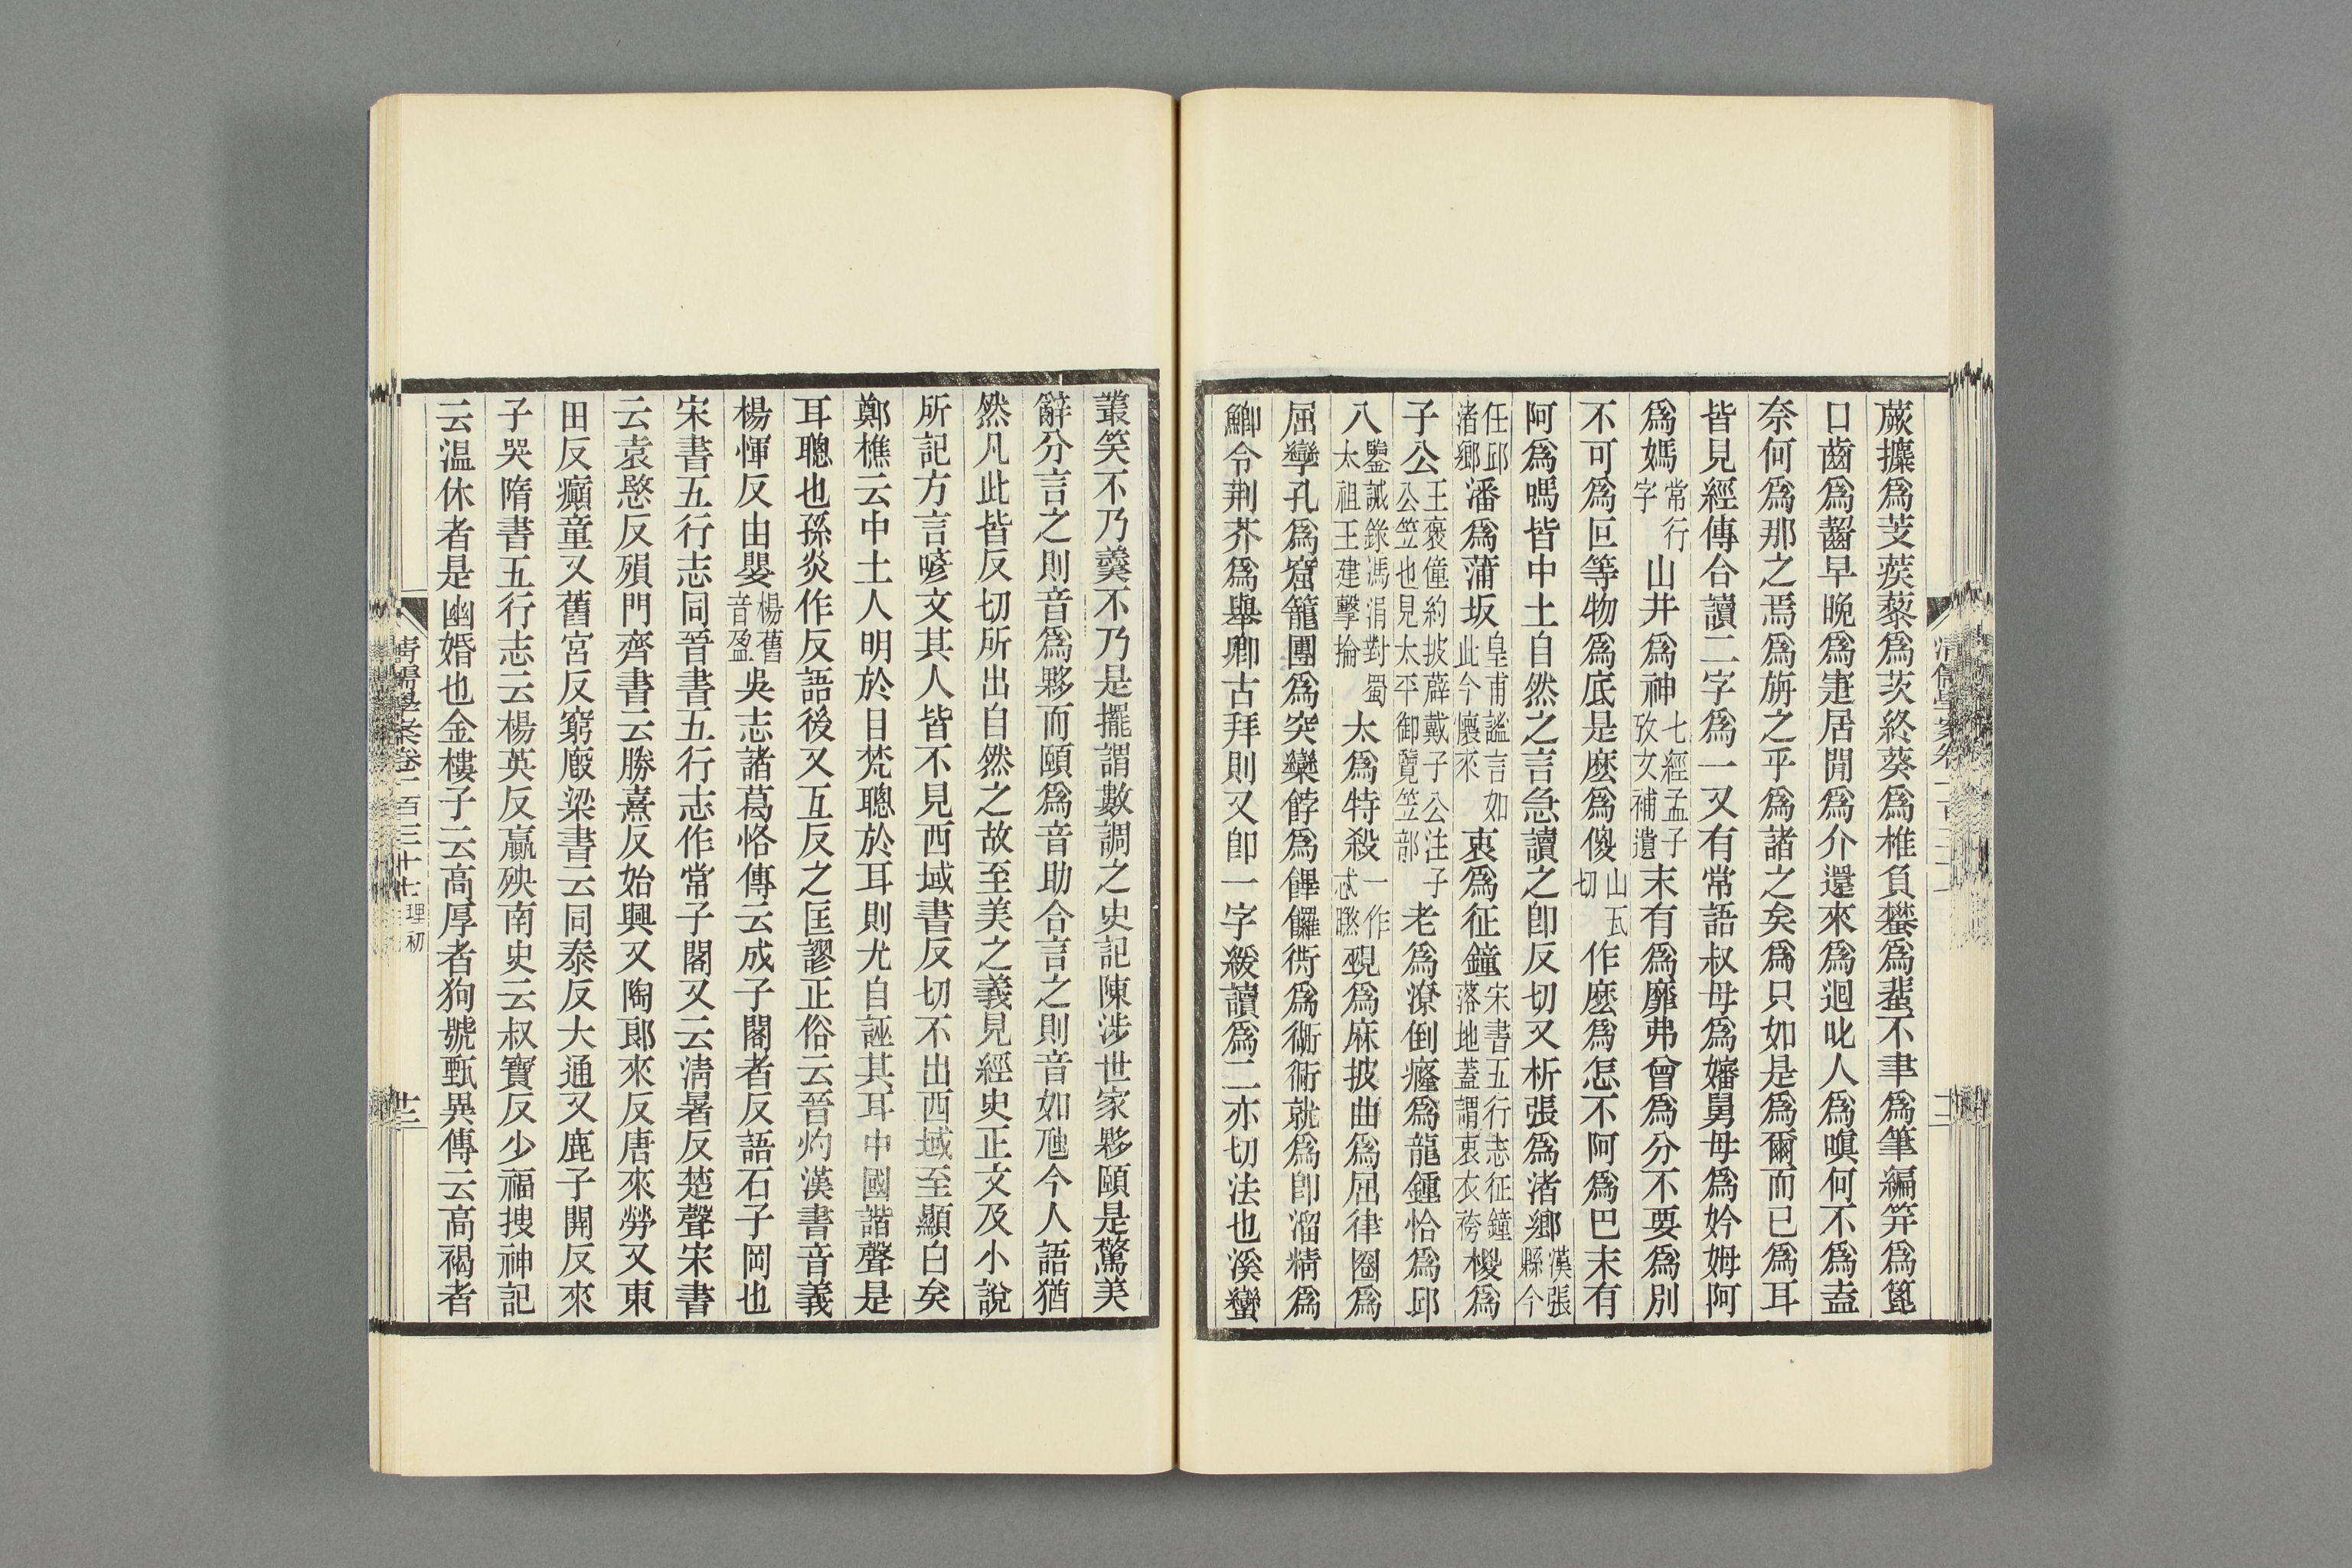 蕨攗爲芰蒺藜爲茨終葵爲椎負蠜爲蜚不聿爲筆編笄爲箆
口齒爲齠早晚爲疌居閒爲介還來爲迴叱人爲嗔何不爲盍
奈何爲那之焉爲旃之乎爲諸之矣爲只如是爲爾而已爲耳
皆見經傳合讀二字爲一又有常語叔母爲嬸舅母爲妗姆阿
爲媽常行字山井爲神七經孟子攷文補遺末有爲靡弗曾爲分不要爲別
不可爲叵等物爲底是麽爲傻山瓦切作麽爲怎不阿爲巴末有
阿爲嗎皆中土自然之言急讀之卽反切又析張爲渚鄉漢張縣今
任邱渚鄉潘爲蒲坂皇甫謐言如此今懷來衷爲征鐘宋書五行志征鐘落地蓋謂衷衣袴椶爲
子公王褒僮約披薜戴子公注子公笠也見太平御覽笠部老爲潦倒癃爲龍鍾恰爲邱
八鑒誡錄馮涓對蜀太祖王建擊掄太爲特殺一作忒煞覡爲麻披曲爲屈律圈爲
屈孿孔爲窟籠團爲突欒餑爲饆饠衖爲衚衕就爲卽溜精爲
鯽令荆芥爲舉卿古拜則又卽一字緩讀爲二亦切法也溪蠻
叢笑不乃羹不乃是擺謂數調之史記陳涉世家夥頤是驚美
辭分言之則音爲夥而頤爲音助合言之則音如虺今人語猶
然凡此皆反切所出自然之故至美之義見經史正文及小說
所記方言喭文其人皆不見西域書反切不出西域至顯白矣
鄭樵云中土人明於目梵聰於耳則尤自誣其耳中國諧聲是
耳聰也孫炎作反語後又互反之匡謬正俗云晉灼漢書音義
楊惲反由嬰楊舊音盈吳志諸葛恪傳云成子閣者反語石子岡也
宋書五行志同晉書五行志作常子閣又云淸暑反楚聲宋書
云袁愍反殞門齊書云勝憙反始興又陶郞來反唐來勞又東
田反癲童又舊宮反窮廄梁書云同泰反大通又鹿子開反來
子哭隋書五行志云楊英反嬴殃南史云叔寶反少福搜神記
云温休者是幽婚也金樓子云高厚者狗號甄異傳云高褐者
清儒學案卷一百三十七 理初